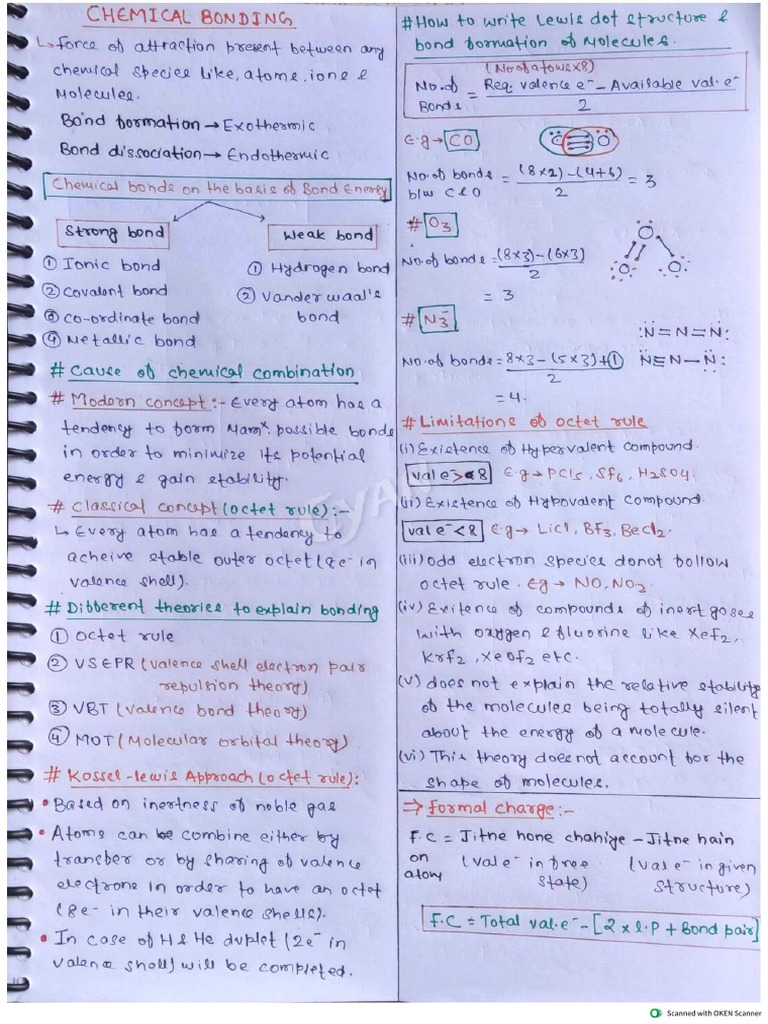 CHEMICAL BONDING
↳ Force of attraction present between any
chemical species like, atoms, ions &
Molecules.
Bond formation → Exothermic
Bond dissociation → Endothermic
Chemical bonds on the basis of Bond Energy
Strong bond
① Ionic bond
② Covalent bond
③ Co-ordinate bond
④ Metallic bond
Weak bond
① Hydrogen bond
② Vander waal's
bond
# Cause of chemical combination
# Modern concept :- Every atom has a
tendency to form Mamˣ. possible bonds
in order to minimize its potential
energy & gain stability.
# Classical concept (octet rule) :-
↳ Every atom has a tendency to
acheive stable outer octet (8e⁻ in
valence shell).
# Different theories to explain bonding
① Octet rule
② VSEPR (valence shell electron pair
repulsion theory)
③ VBT (Valence bond theory)
④ MOT (Molecular orbital theory)
# Kossel-lewis Approach (octet rule):
• Based on inertness of noble gas
• Atoms can be combine either by
transfer or by sharing of valence
electrons in order to have an octet
(8e⁻ in their valence shells).
• In case of H & He duplet (2e⁻ in
valence shell) will be completed.
# How to write Lewis dot structure &
bond formation of Molecules.
(No of atoms×8)
No. of Bonds = Req. valence e⁻ – Available val. e⁻
2
E.g → CO
C O
No. of bonds = (8×2) – (4+6) = 3
b/w C & O 2
# O₃
No. of bonds = (8×3) – (6×3)
2
= 3
O
O O
# N₃⁻
N = N = N
No. of bonds = 8×3 – (5×3)+①
2
N ≡ N – N
= 4.
# Limitations of octet rule
(i) Existence of Hypervalent compound.
val e⁻ > 8 E.g → PCl₅, SF₆, H₂SO₄.
(ii) Existence of Hypovalent Compound.
val e⁻ < 8 E.g → LiCl, BF₃, BeCl₂.
(iii) Odd electron species donot follow
octet rule. Eg → NO, NO₂
(iv) Exitence of compounds of inert gases
with oxygen & fluorine like XeF₂,
KrF₂, XeOF₂ etc.
(v) does not explain the relative stability
of the molecules being totally silent
about the energy of a molecule.
(vi) This theory does not account for the
shape of molecules.
⇒ Formal charge :-
F.C = Jitne hone chahiye – Jitne hain
on atom (val e⁻ in free (val e⁻ in given
state) structure)
F.C = Total val. e⁻ – [2 × l.P + Bond pair]
Scanned with OKEN Scanner